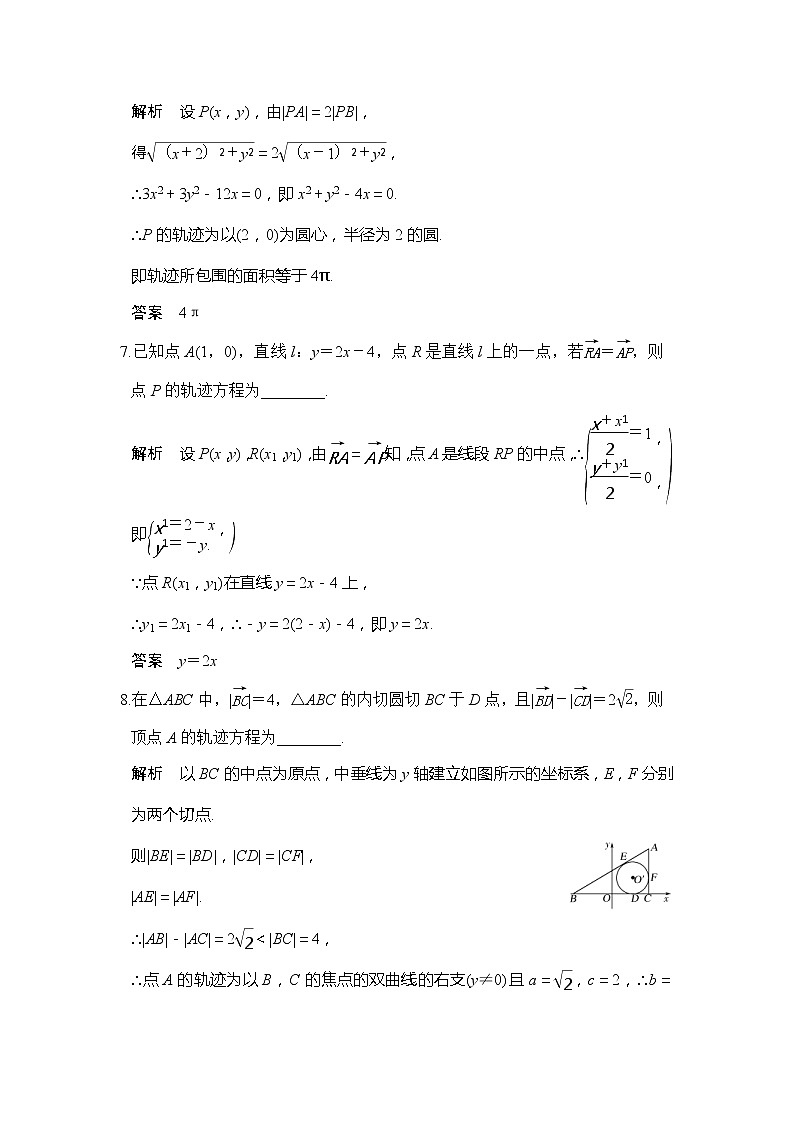 解析　设 P(x，y)，由|PA|＝2|PB|，
得√(（x＋2）²＋y²)＝2√(（x－1）²＋y²)，
∴3x²＋3y²－12x＝0，即 x²＋y²－4x＝0.
∴P 的轨迹为以(2，0)为圆心，半径为 2 的圆.
即轨迹所包围的面积等于 4π.
答案　4π
7.已知点 A(1，0)，直线 l：y＝2x－4，点 R 是直线 l 上的一点，若→RA＝→AP，则
点 P 的轨迹方程为________.
解析　设 P(x，y)，R(x₁，y₁)，由→RA＝→AP知，点 A 是线段 RP 的中点，∴{(x＋x₁)/2＝1，(y＋y₁)/2＝0，
即{x₁＝2－x，y₁＝－y.
∵点 R(x₁，y₁)在直线 y＝2x－4 上，
∴y₁＝2x₁－4，∴－y＝2(2－x)－4，即 y＝2x.
答案　y＝2x
8.在△ABC 中，|→BC|＝4，△ABC 的内切圆切 BC 于 D 点，且|→BD|－|→CD|＝2√2，则
顶点 A 的轨迹方程为________.
解析　以 BC 的中点为原点，中垂线为 y 轴建立如图所示的坐标系，E，F 分别
为两个切点.
则|BE|＝|BD|，|CD|＝|CF|，
|AE|＝|AF|.
y A E O′ F B O D C x
∴|AB|－|AC|＝2√2＜|BC|＝4，
∴点 A 的轨迹为以 B，C 的焦点的双曲线的右支(y≠0)且 a＝√2，c＝2，∴b＝